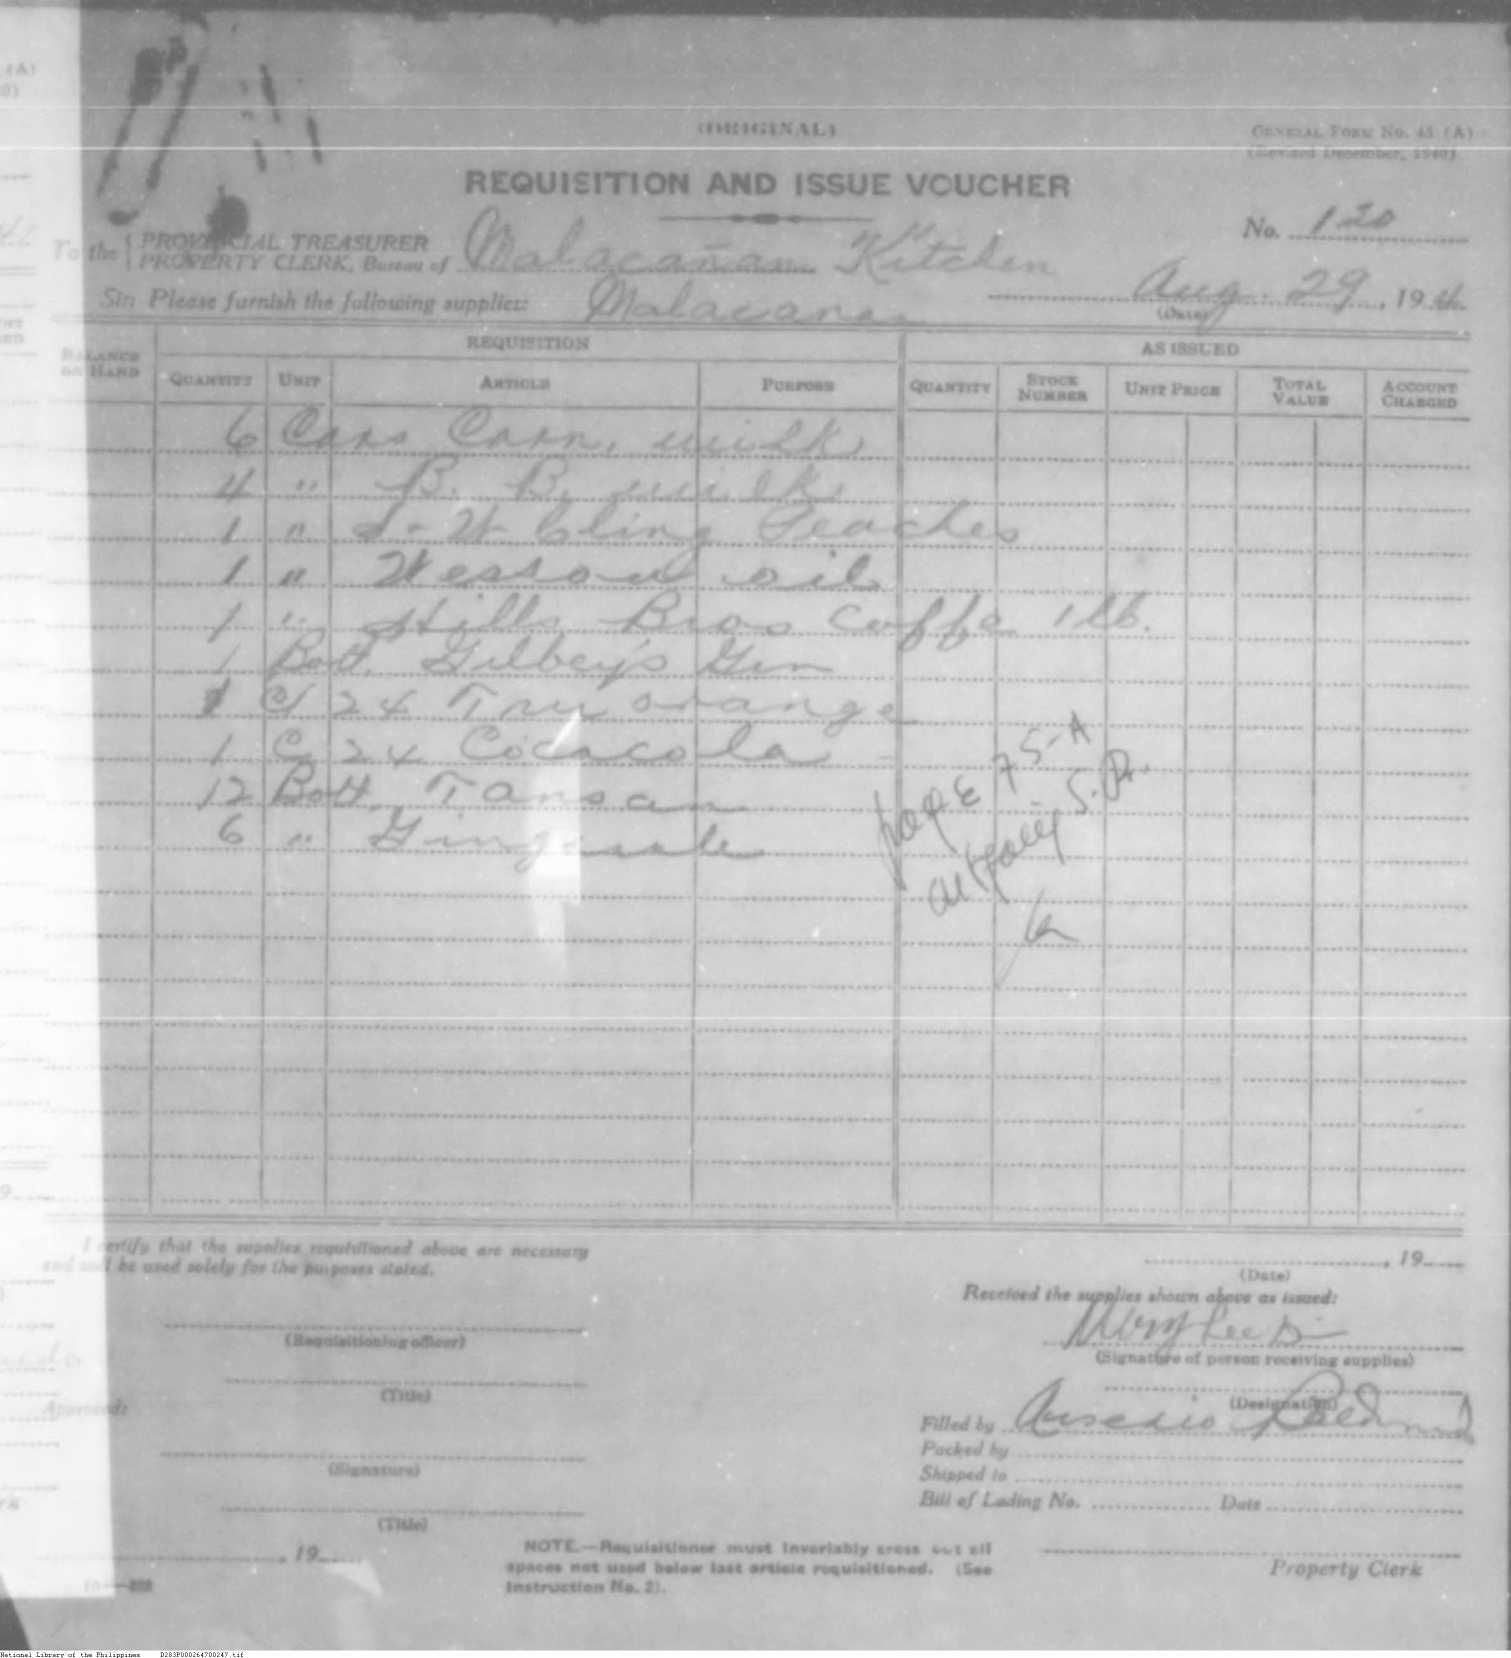 (ORIGINAL)
GENERAL FORM No. 45 (A)
(Revised December, 1940)
REQUISITION AND ISSUE VOUCHER
No. 120
To the { PROVINCIAL TREASURER
PROPERTY CLERK, Bureau of Malacañan Kitchen
Aug. 29, 19
(Date)
Sir: Please furnish the following supplies: Malacañan
REQUISITION AS ISSUED
BALANCE ON HAND QUANTITY UNIT ARTICLE PURPOSE QUANTITY STOCK NUMBER UNIT PRICE TOTAL VALUE ACCOUNT CHARGED
6 Cans Carn. milk
4 " B. B. milk
1 " Cling Peaches
1 " Wesson oil
1 " Hills Bros Coffe 1 lb.
1 Bott. Gilbey's Gin
1 C/ 24 Tru orange
1 C/ 24 Cocacola
12 Bott. Tansan
6 " Gingerale
page 75-A
I certify that the supplies requisitioned above are necessary
and will be used solely for the purposes stated.
(Requisitioning officer)
(Title)
Approved:
(Signature)
(Title)
, 19
, 19
(Date)
Received the supplies shown above as issued:
(Signature of person receiving supplies)
(Designation)
Filled by
Packed by
Shipped to
Bill of Lading No. Date
Property Clerk
NOTE.—Requisitioner must invariably cross out all
spaces not used below last article requisitioned. (See
Instruction No. 2).
National Library of the Philippines D283P000264700247.tif